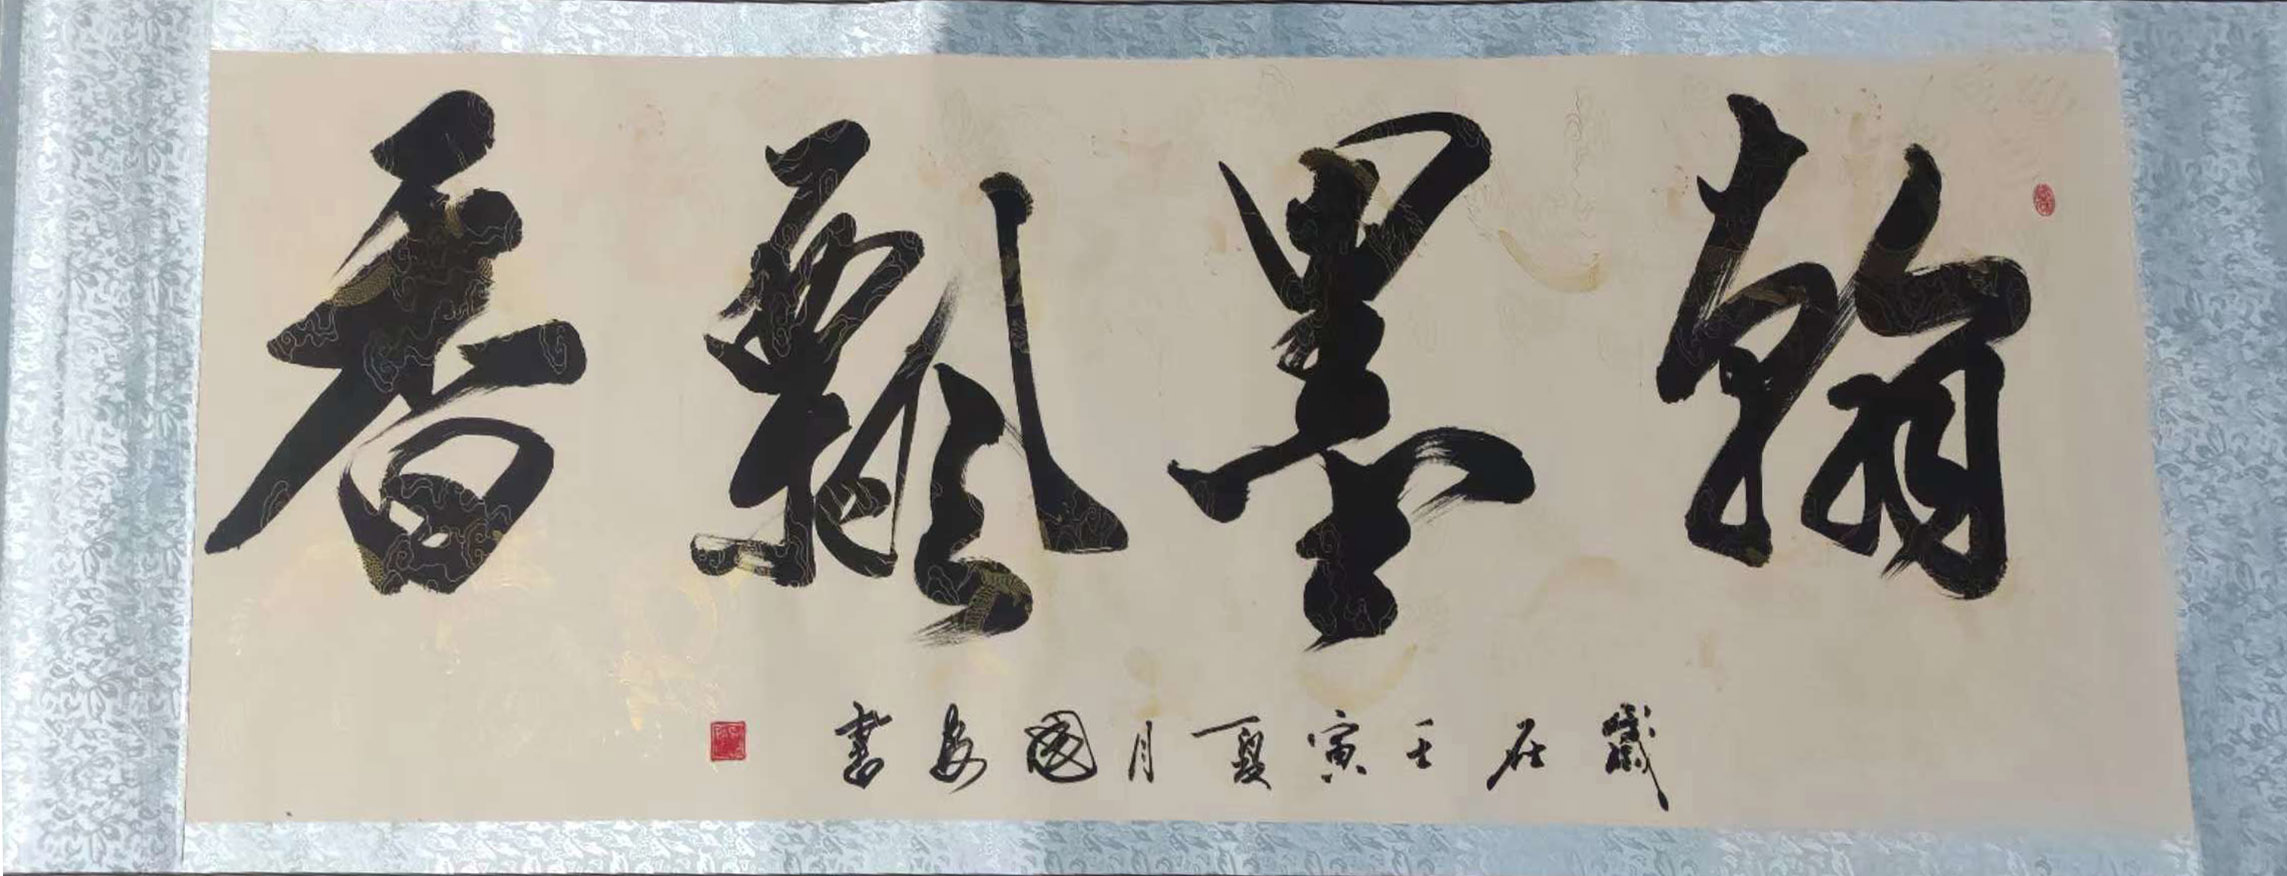 翰墨飘香
歲在壬寅夏月國安書